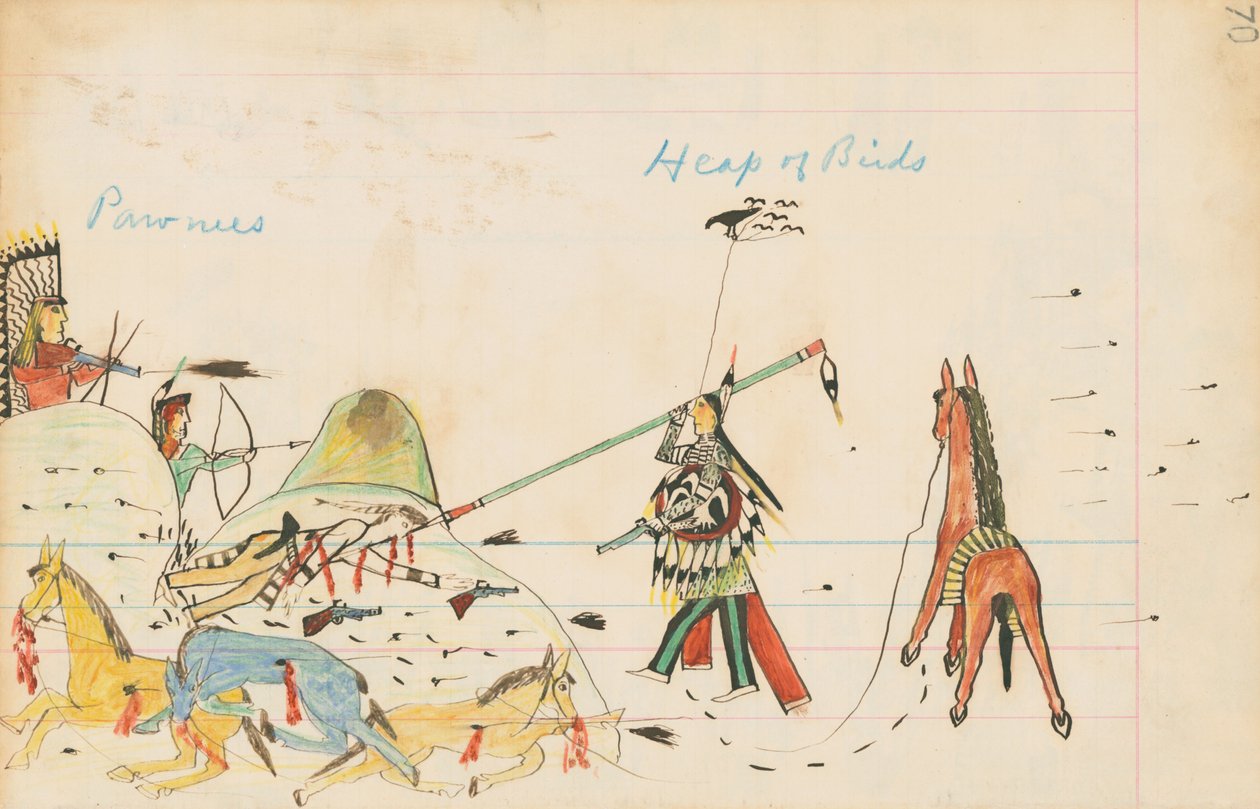 70
Heap of Birds
Pawnees